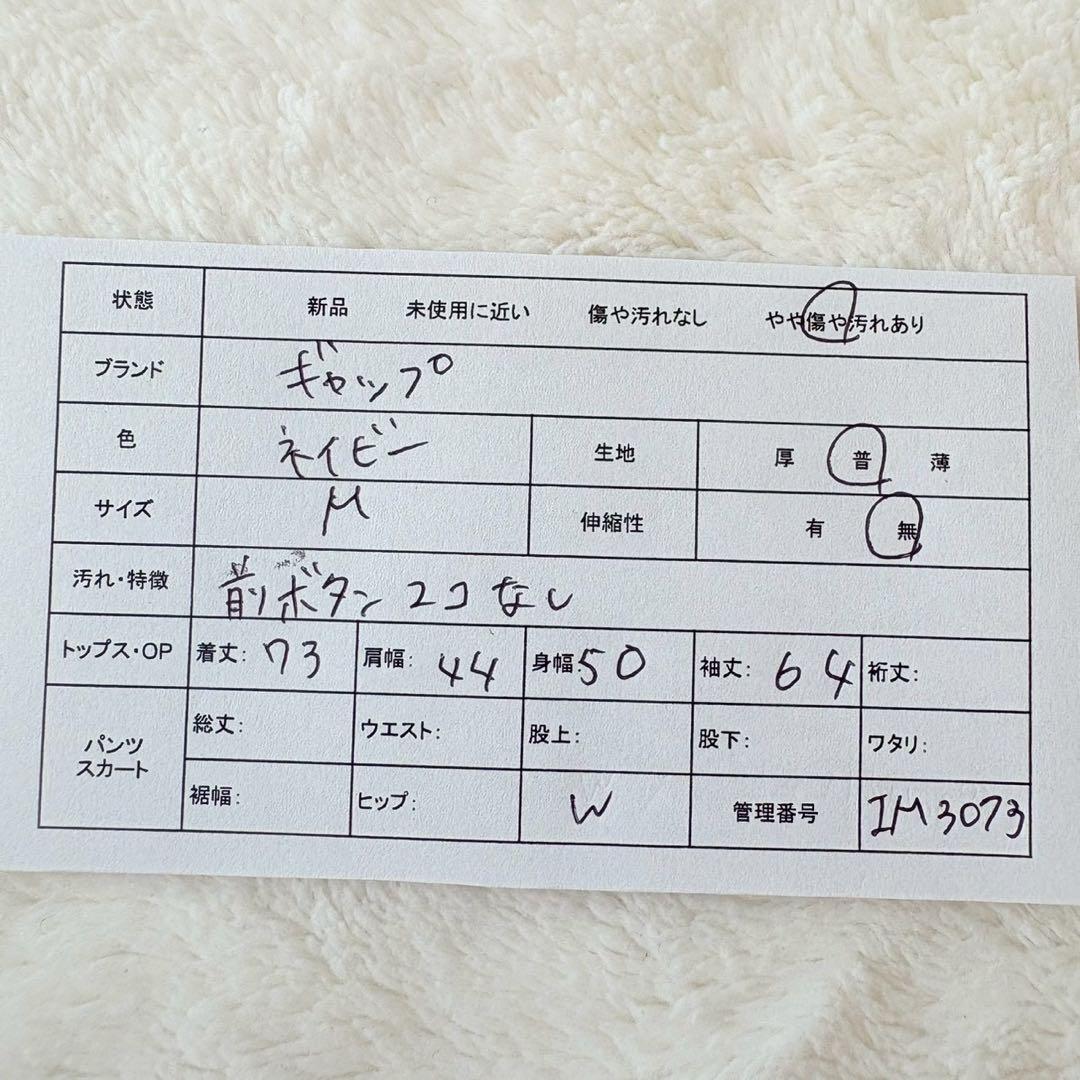 状態 新品 未使用に近い 傷や汚れなし やや傷や汚れあり
ブランド ギャップ
色 ネイビー 生地 厚 普 薄
サイズ M 伸縮性 有 無
汚れ・特徴 前ボタン2コなし
トップス・OP 着丈: 73 肩幅: 44 身幅: 50 袖丈: 64 裄丈:
パンツ
スカート
総丈: ウエスト: 股上: 股下: ワタリ:
裾幅: ヒップ: W 管理番号 IM3073